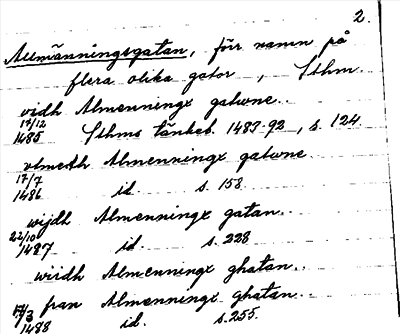 2.
Allmänningsgatan, förr namn på
flera olika gator, Sthm.
vidh Almenningx gatwne..
17/12
1485 Sthms tänkeb. 1483-92, s. 124
utmedh Almenningx gatwne
17/7
1486 id. s. 158
wijdh Almenningx gatan..
22/10
1487 id. s. 228
widh Almenningx ghatan..
fran Almenningx ghatan..
17/3
1488 id. s. 255.